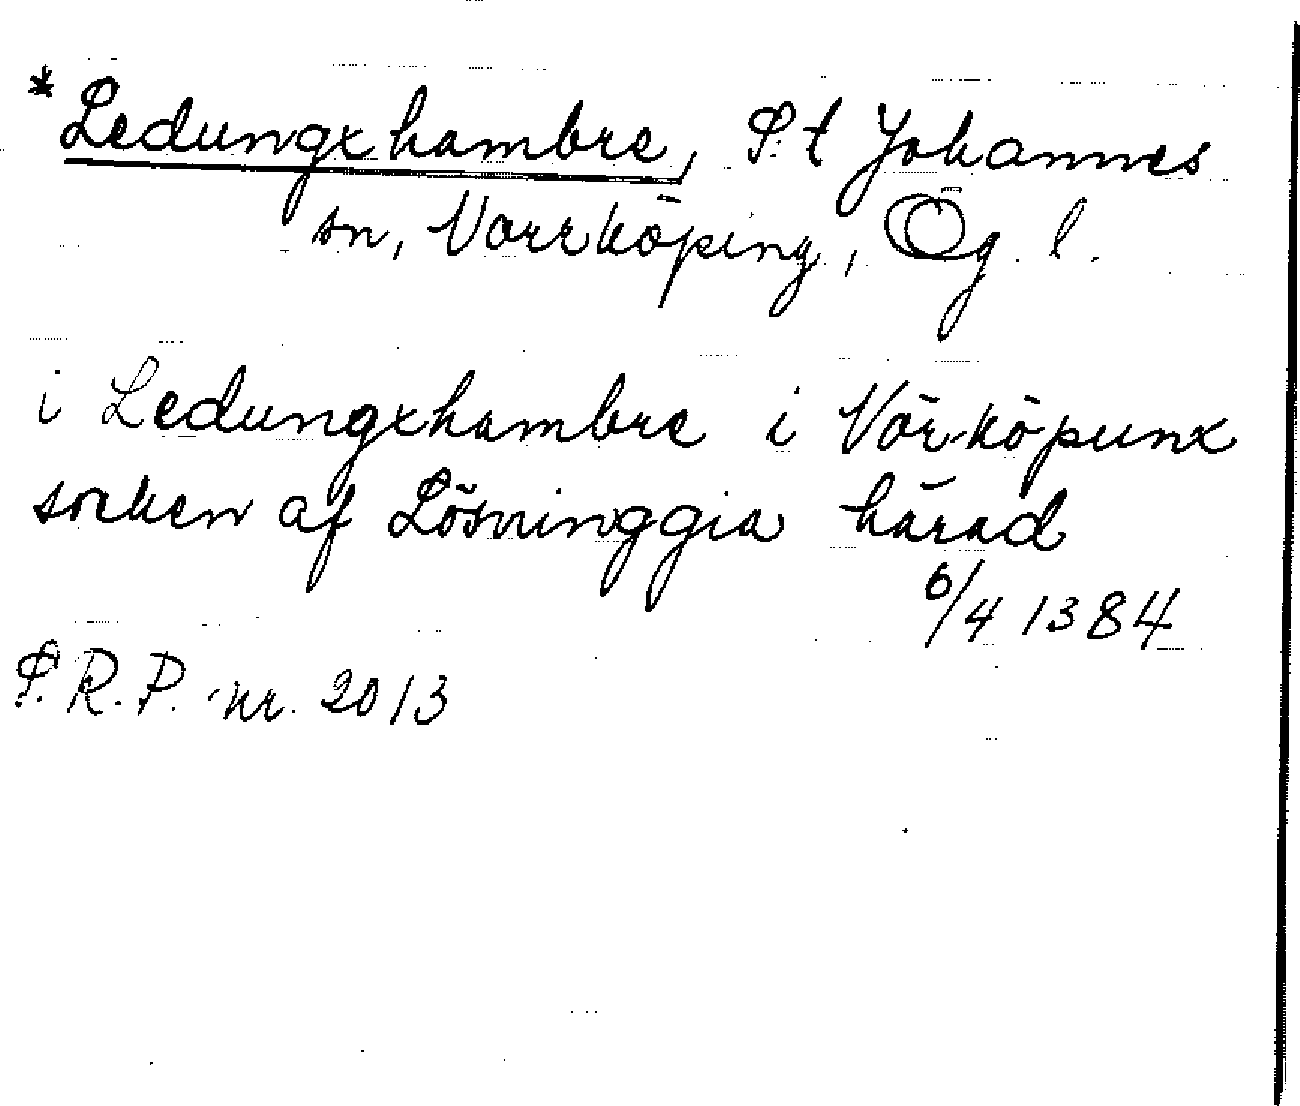 *Ledungxhambre, S:t Johannes
sn, Norrköping, Ög. l.
i Ledungxhambre i Nörköpunx
socken af Lösninggia härad
6/4 1384
S.R.P. nr. 2013